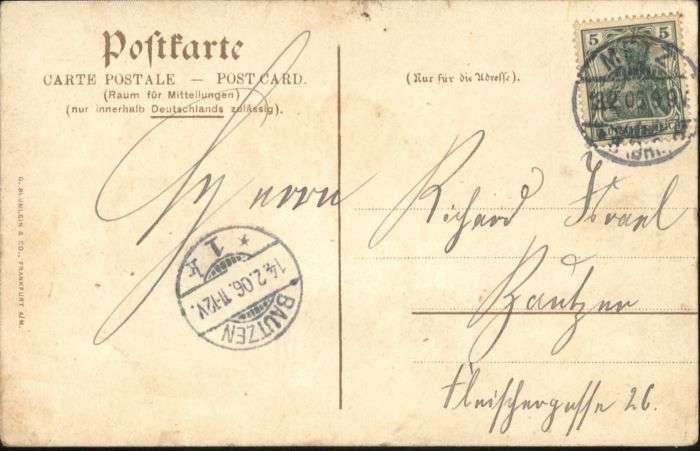 Postkarte
CARTE POSTALE — POST CARD.
(Raum für Mitteilungen)
(nur innerhalb Deutschlands zulässig).
(Nur für die Adresse).
5 5
METZ
DEUTSCHES REICH
Herrn
Richard Israel
Bautzen
Fleischergasse 26.
BAUTZEN
14.2.06.11-12V.
* 1 k
G. BLÜMLEIN & CO., FRANKFURT A/M.